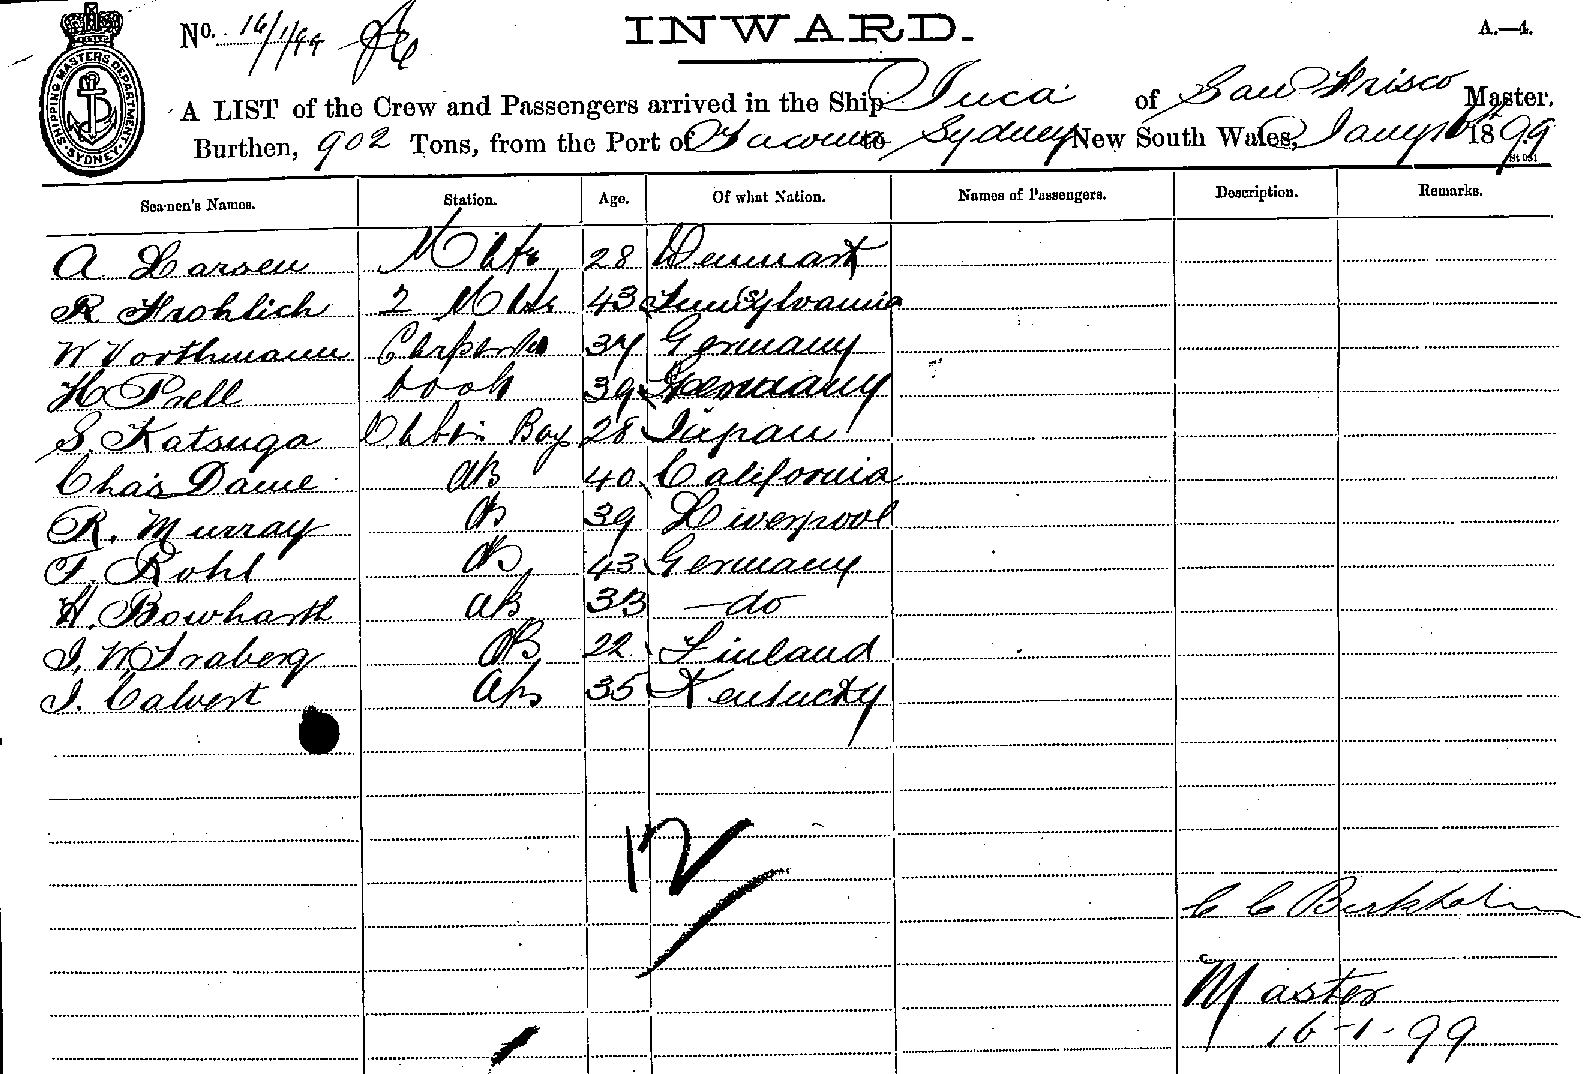 No. 16/1/99
INWARD.
A.—4.
SHIPPING MASTERS DEPARTMENT SYDNEY
A LIST of the Crew and Passengers arrived in the Ship Inca of San Frisco Master.
Burthen, 902 Tons, from the Port of Tacoma to Sydney New South Wales, 1899
Seamen's Names. Station. Age. Of what Nation. Names of Passengers. Description. Remarks.
A Larsen Mate 28 Denmark
R Frohlich 2 Mate 43 Pennsylvania
W Vorthmann Carpenter 37 Germany
H Prell Cook 39 Germany
S. Katsuga Cabin Boy 28 Japan
Chas Dame AB 40 California
R. Murray AB 39 Liverpool
F. Rohl AB 43 Germany
H. Bowharth AB 33 —do
J. W. Traberg AB 22 Finland
J. Calvert AB 35 Kentucky
12
C C Birkholm
Master
16-1-99